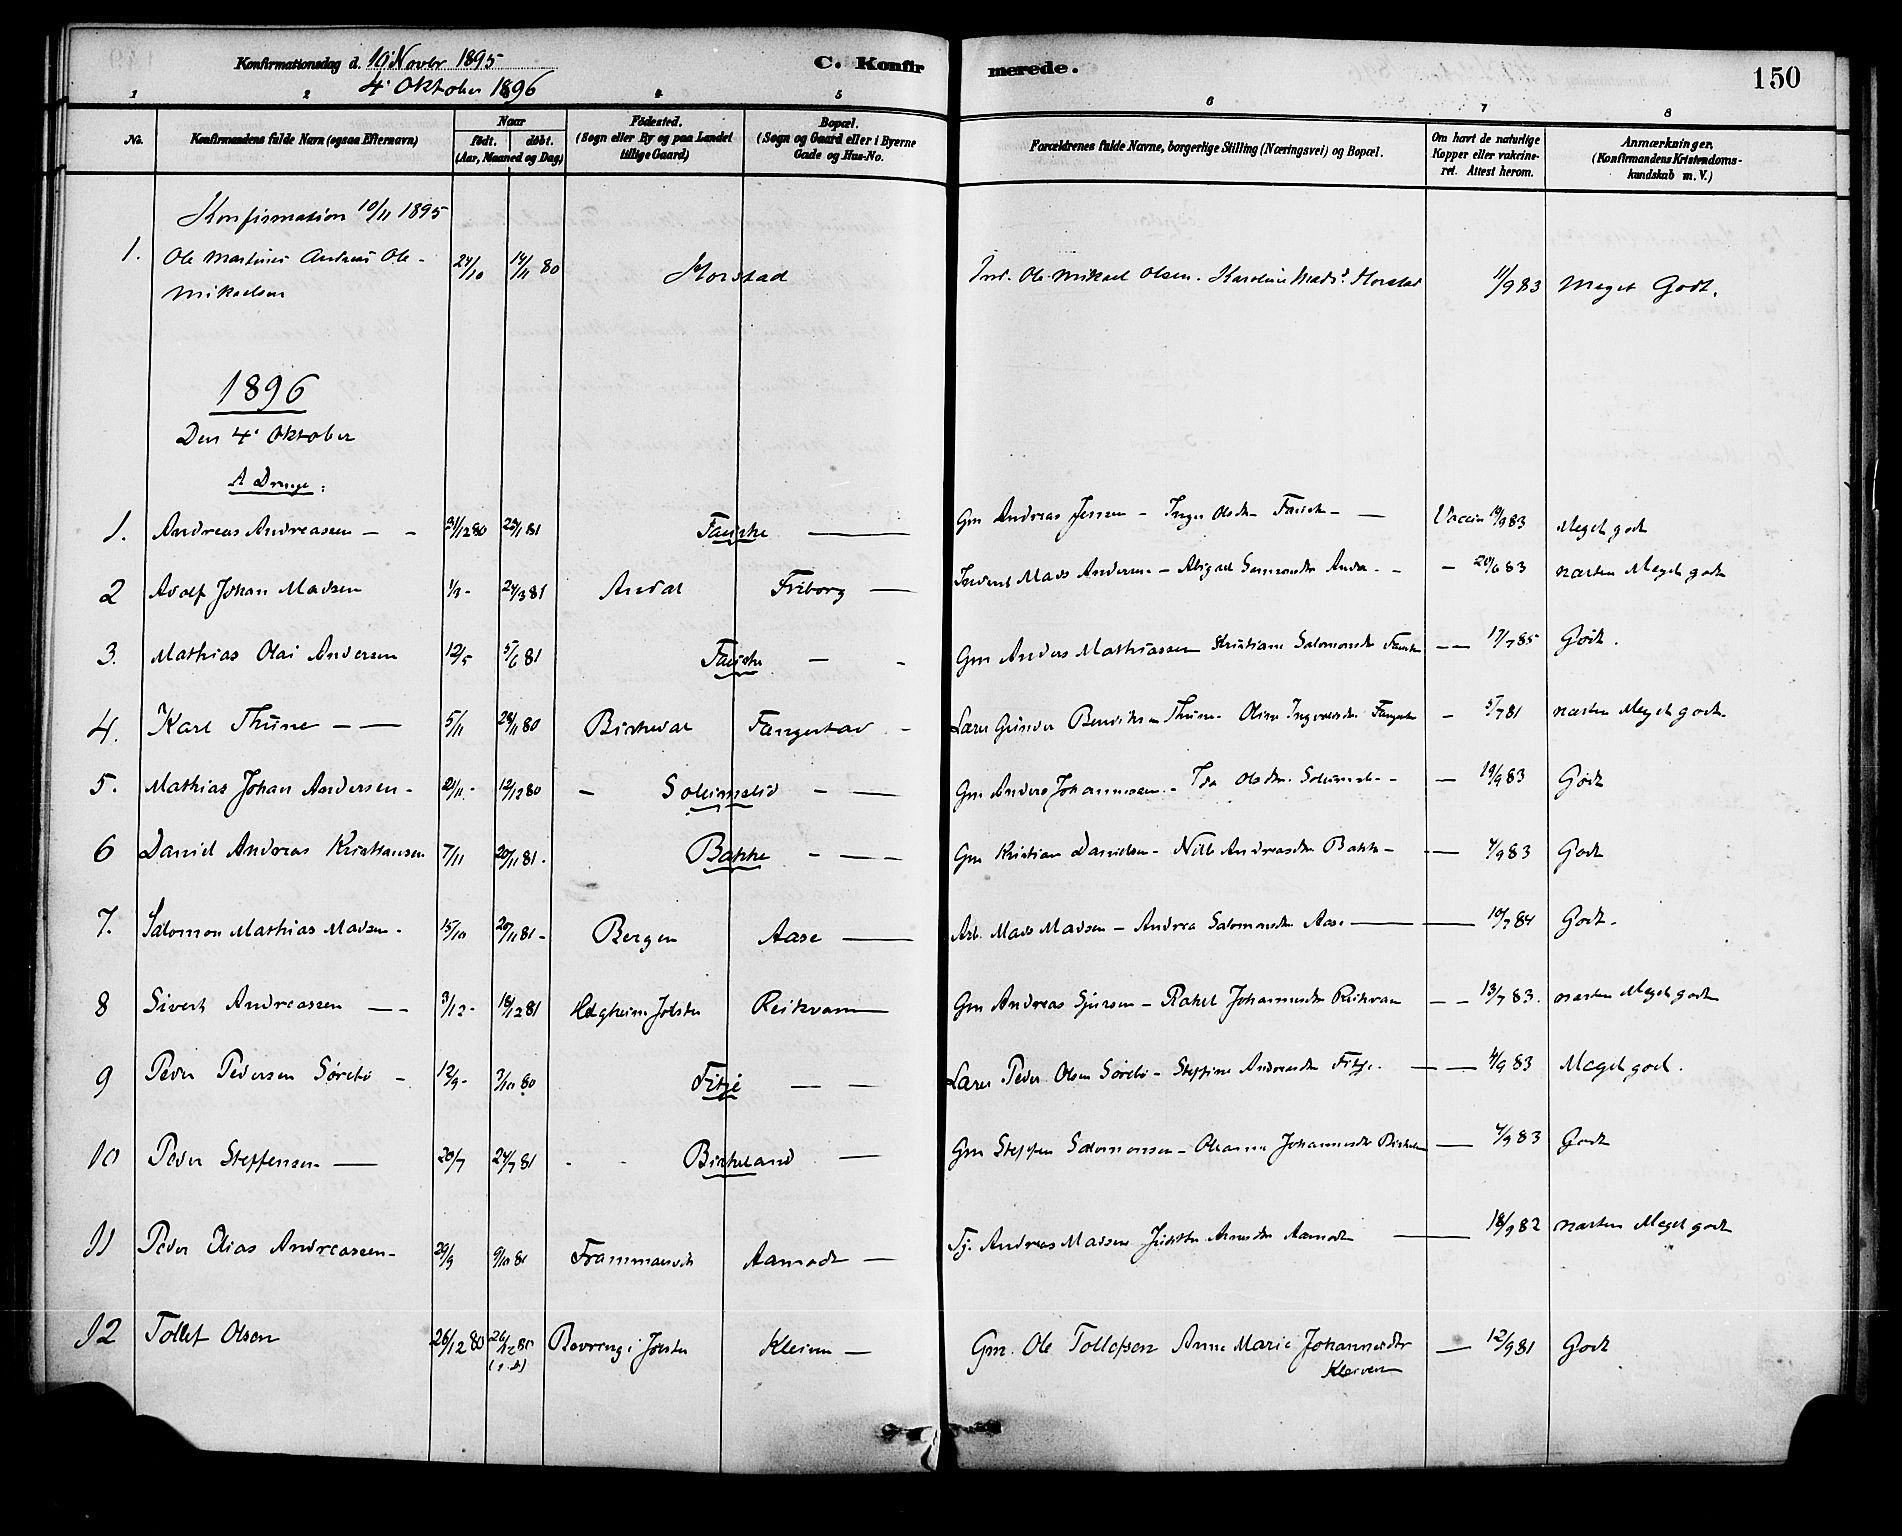 Konfirmationsdag d. 10' Novbr 1895
4' Oktober 1896
C. Konfirmerede.
150
1 2 3 4 5 6 7 8
No.
Konfirmandens fulde Navn (ogsaa Efternavn)
Naar
født. døbt.
(Aar, Maaned og Dag)
Fødested.
(Sogn eller By og paa Landet
tillige Gaard)
Bopæl.
(Sogn og Gaard eller i Byerne
Gade og Hus-No.
Forældrenes fulde Navne, borgerlige Stilling (Næringsvei) og Bopæl.
Om havt de naturlige
Kopper eller vakcine-
ret. Attest herom.
Anmærkninger.
(Konfirmandens Kristendoms-
kundskab m. V.)
Konfirmation 10/11 1895
1. Ole Martinus Andreas Ole- 24/10 14/11 80 Ind. Ole Mikael Olsen. Karoline Madsd 11/9 83 Meget Godt.
Mikaelsen
1896
Den 4' Oktober
A Drenge:
1. Andreas Andreassen – – 31/12 80 23/1 81 Fauske — Gm Andreas Jensen – Inger Olsdtr Fauske – — Vaccin 19/9 83 Meget godt
2 Adolf Johan Madsen 1/3 - 24/3 81 Ardal Friborg — Mads Andersen – Abigael – – 20/6 83 næsten Meget godt
3. Mathias Olai Andersen 12/5 5/6 81 Fauske – - Gm Anders Mathiassen Kristiane Salomonsdtr Fauske – – 17/7 85 Godt.
4. Karl Thune – — 5/11 28/11 80 Birkedal Lærer Gunder Bendiksen Thune - Oline – 5/7 81 næsten Meget godt.
5. Mathias Johan Andersen - 21/11 - 12/12 80 – Solheimslid – — Gm Anders Johannessen. - Ida Olsdtr. - – 19/9 83 Godt
6 Daniel Andreas Kristiansen 7/11 20/11 81. Bakke – – — Gm Kristian Danielsen – Andreasdtr Bakke – — 4/9 83 Godt
7. Salomon Mathias Madsen - 15/10 20/11 81 - Bergen Aase — Arb. Mads Madsen – Andrea Salomonsdtr Aase — — 10/7 84 Godt.
8 Sivert Andreassen — – 3/12 - 18/12 81 Helgheim Jølster Reikvam — Gm Andreas Sjursen – Rakel Johannesdtr Reikvam – – 13/7 83. næsten Meget godt
9 Peder Pedersen Sørebø – 12/9 - 3/10 80 Fitje – – Lærer Peder Olsen Sørebø – Steffine Andreasdtr Fitje. — — 4/9 83 Meget godt.
10 Peder Steffensen — 20/7 24/7 81 - - Birkeland — Gm Steffen Salomonsen – Oleanna Johannesdtr — 4/9 83 Godt
11 Peder Elias Andreassen – 29/9 9/10 81 Aamodt — Andreas Madsen Aamodt — 18/9 82 næsten Meget godt
12 Tollef Olsen 26/12 80 Bevreng i Jølster Kleiven — Gm. Ole Tollefsen Anne Marie Johannesdtr — 12/9 81 Godt
Kleiven